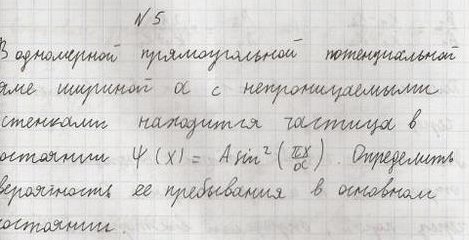 N 5
В одномерной прямоугольной потенциальной
яме шириной α с непроницаемыми
стенками находится частица в
остоянии Ψ(x) = A sin² (πx/α). Определить
вероятность ее пребывания в основном
остоянии.